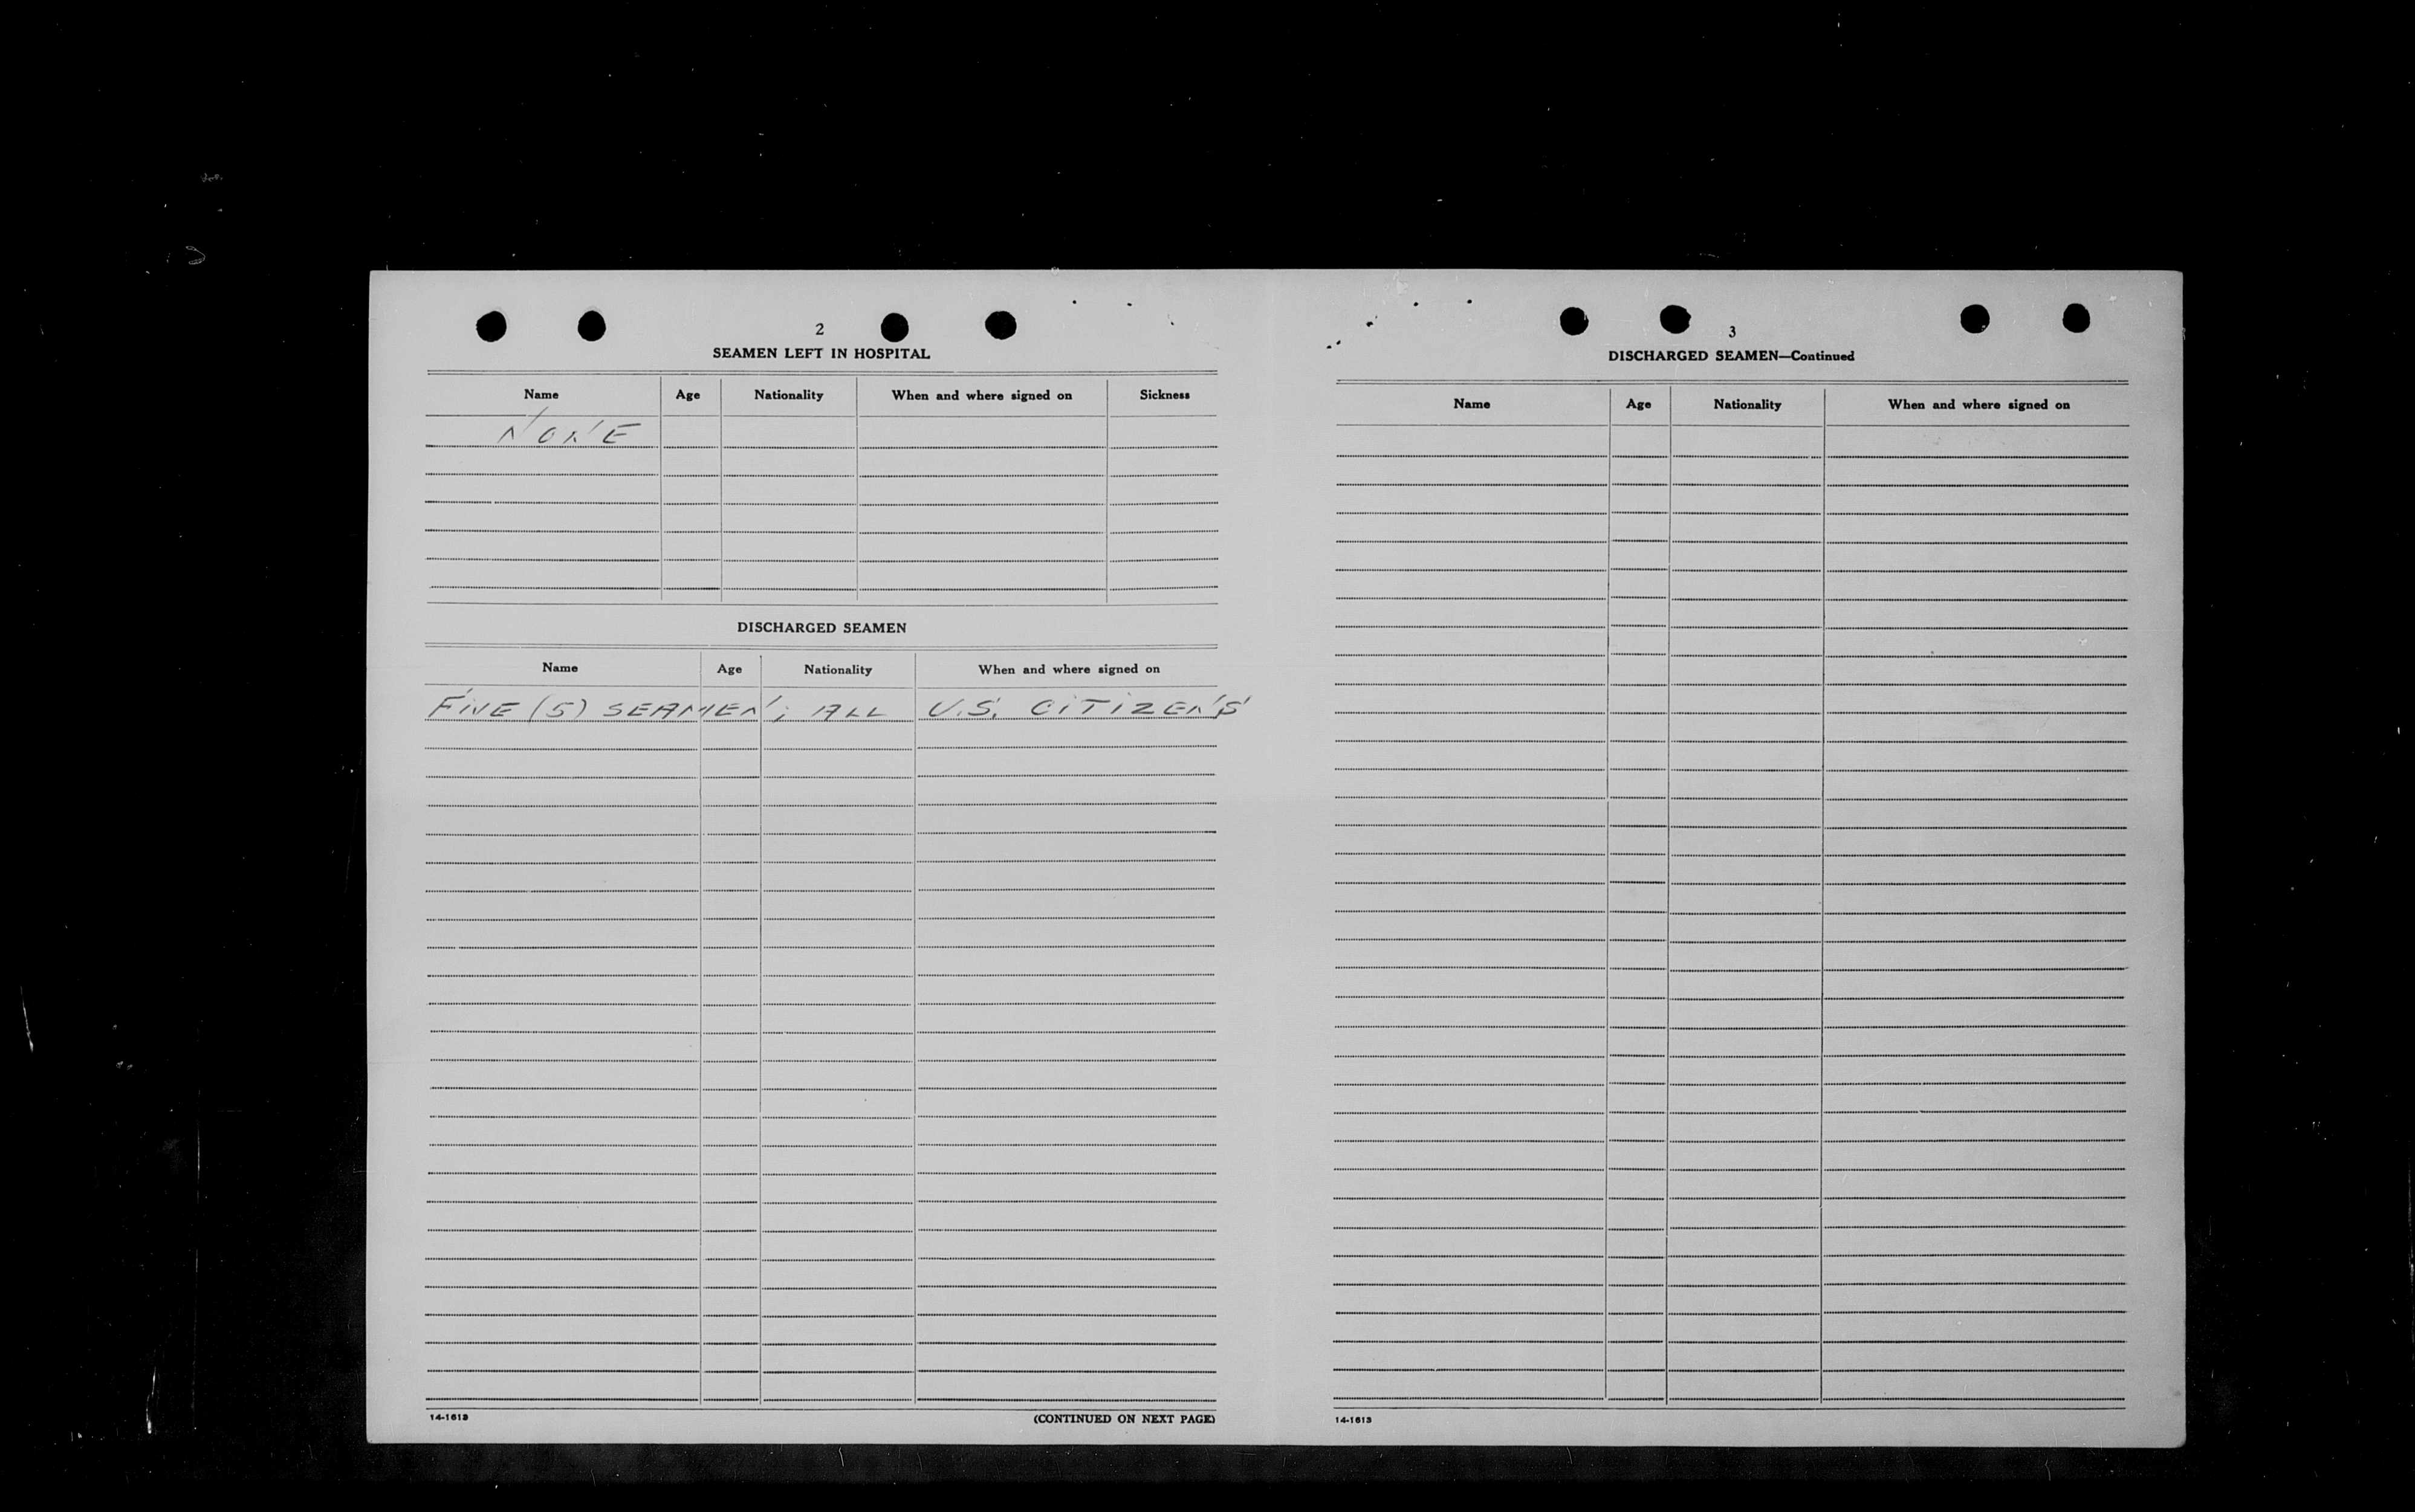 2
SEAMEN LEFT IN HOSPITAL
Name Age Nationality When and where signed on Sickness
NONE
DISCHARGED SEAMEN
Name Age Nationality When and where signed on
FIVE (5) SEAMEN; ALL U.S. CITIZENS
14-1613 (CONTINUED ON NEXT PAGE)
3
DISCHARGED SEAMEN—Continued
Name Age Nationality When and where signed on
14-1613